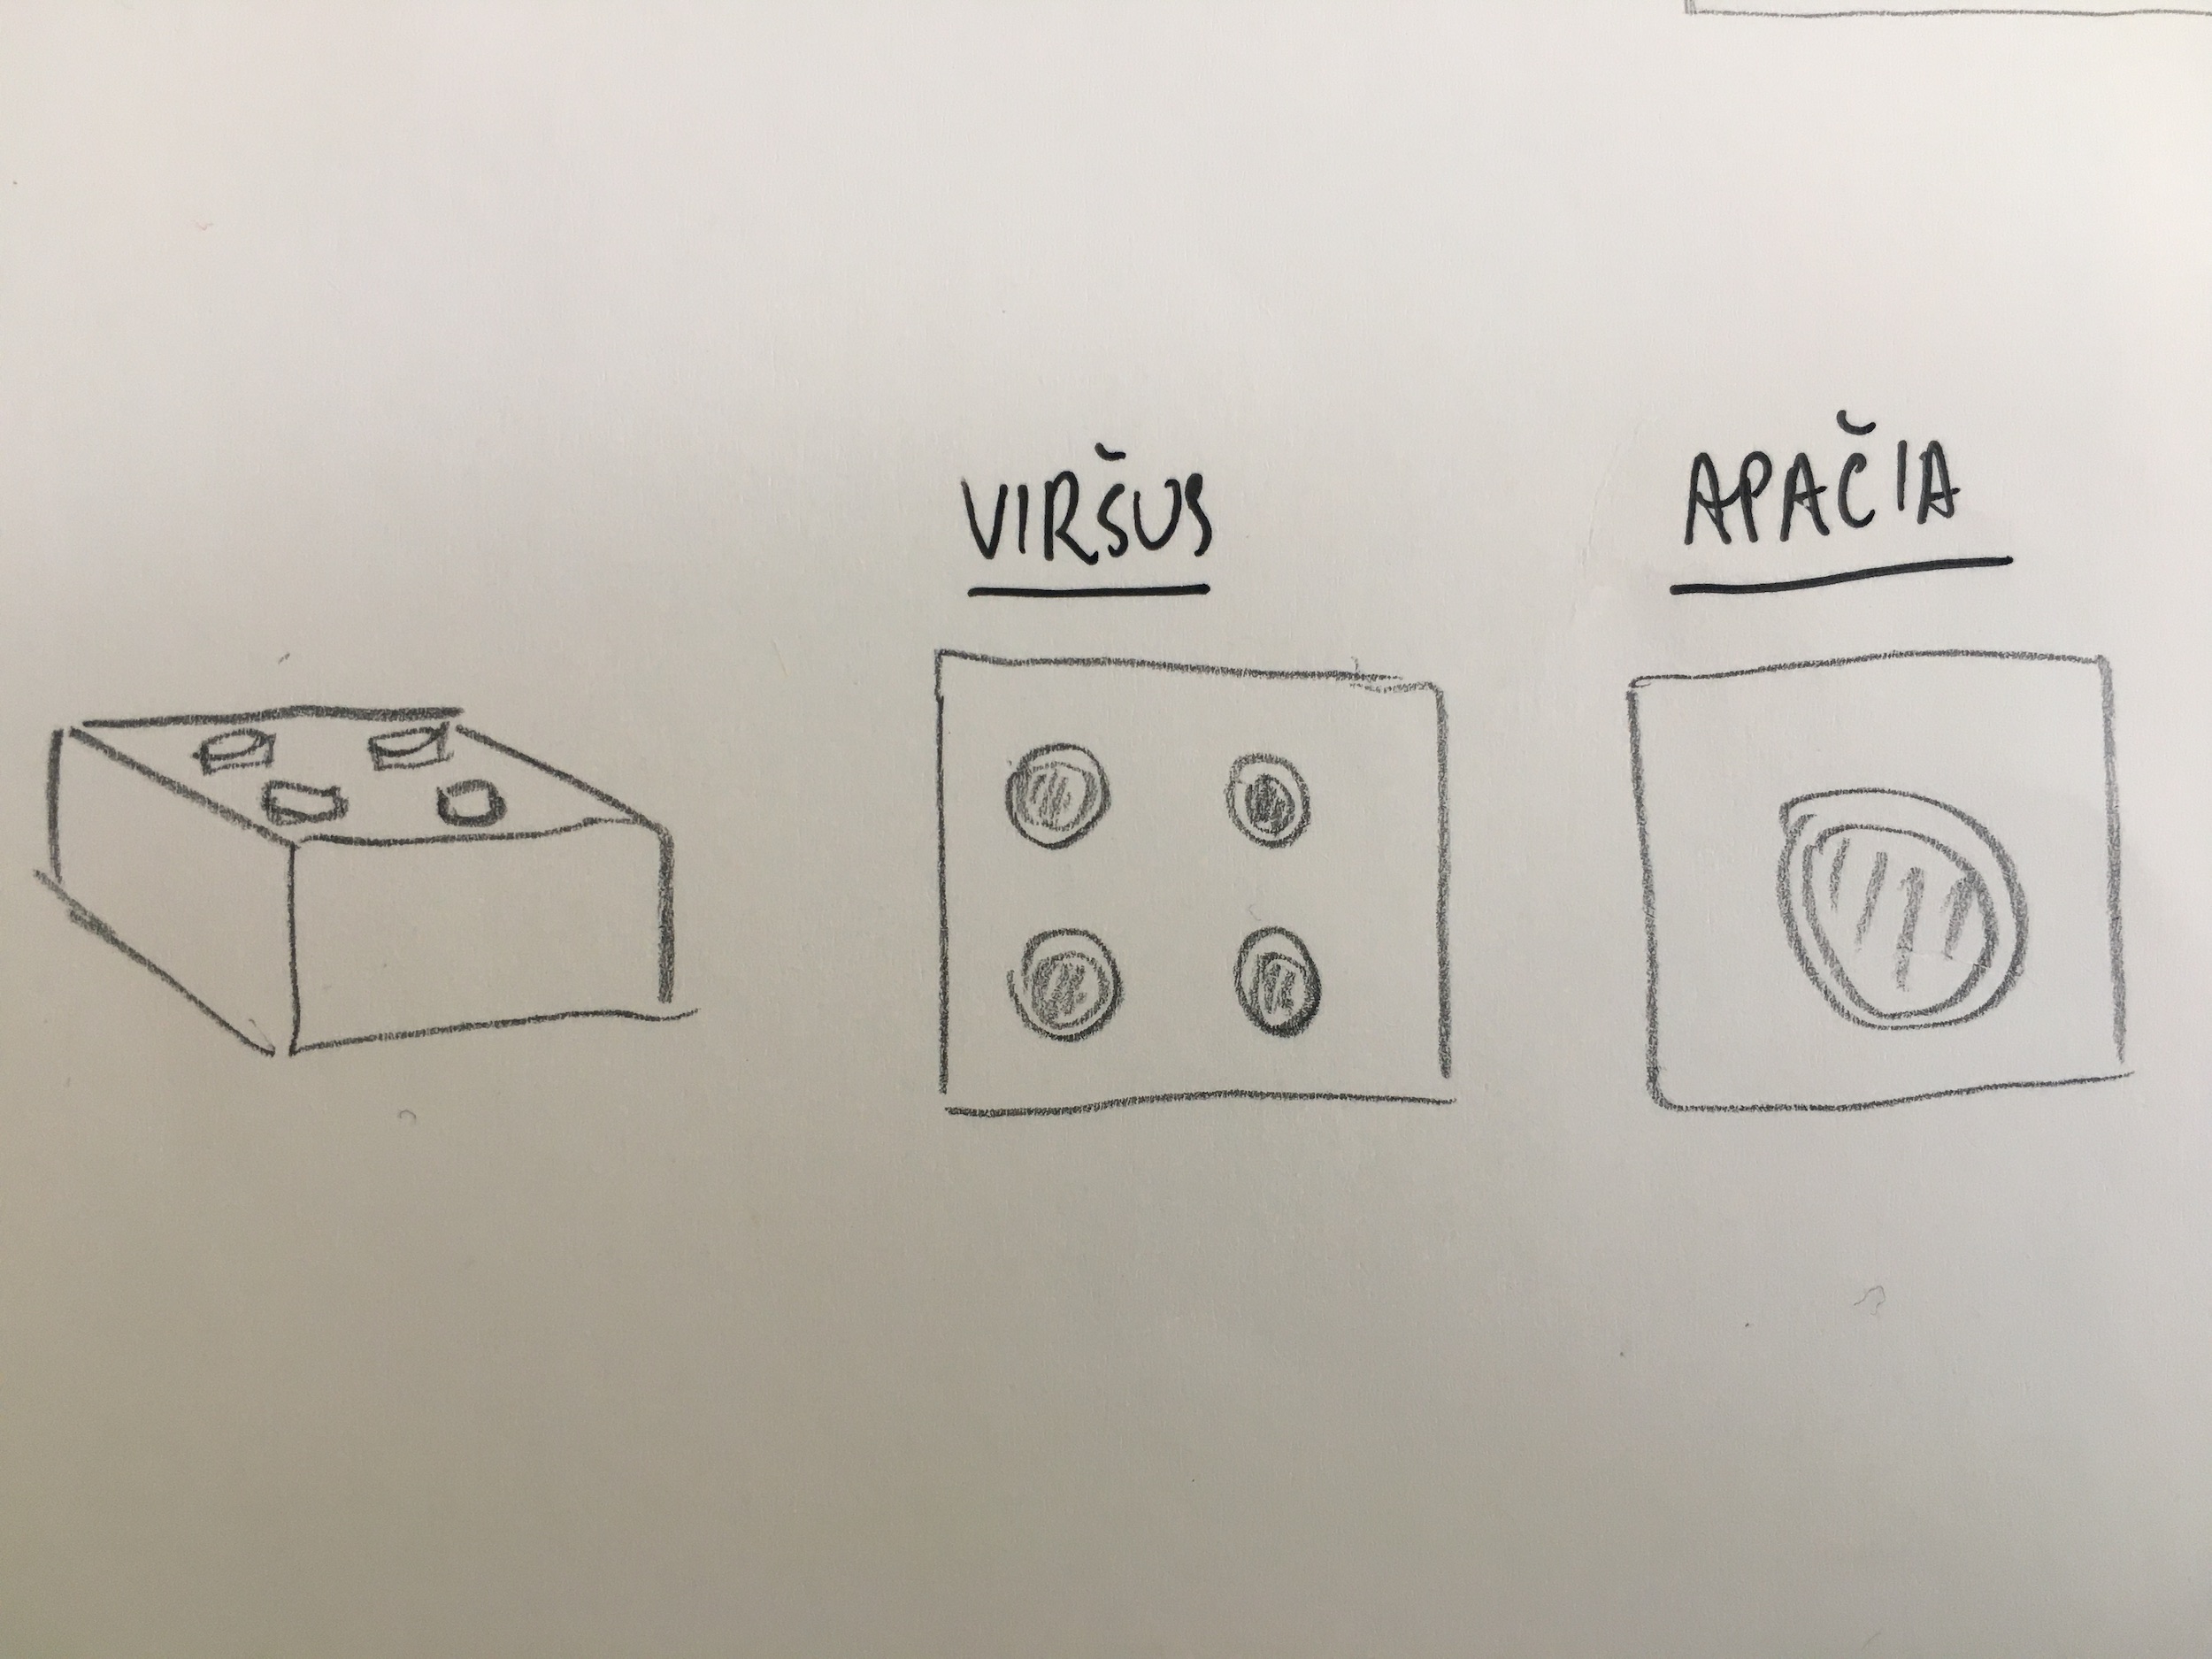 VIRŠUS
APAČIA